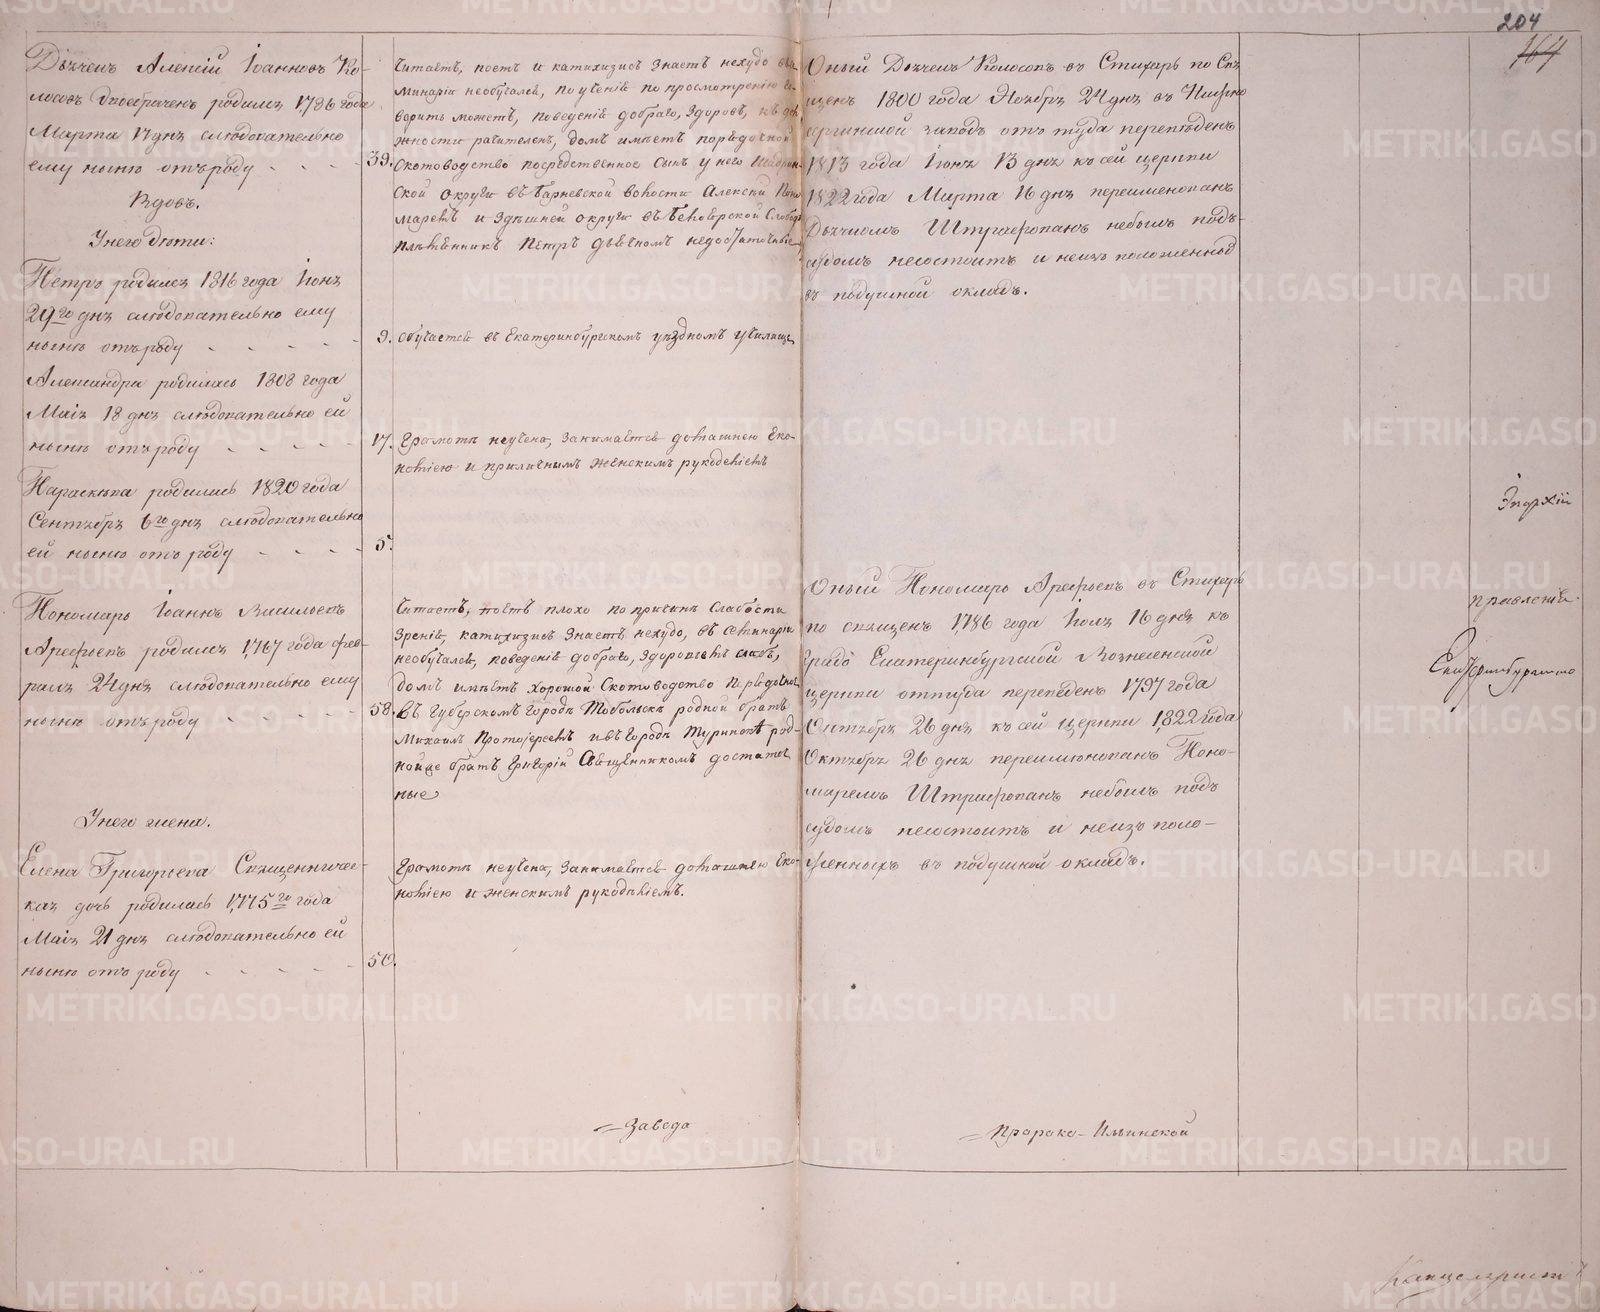 204
164
Дьячекъ Алексій Іоанновъ Ко-
лосовъ двоебраченъ родился 1786 года
Марта 17 дня слѣдовательно
ему нынѣ отъ роду - - - - 39.
Вдовъ.
У него дѣти:
Петръ родился 1816 года Іюня
29го дня слѣдовательно ему
нынѣ отъ роду - - - - - 9.
Александра родилась 1808 года
Маія 18 дня слѣдовательно ей
нынѣ отъ роду - - - - 17.
Параскева родилась 1820 года
Сентября 6го дня слѣдовательно
ей нынѣ отъ роду - - - - 5.
Пономарь Іоаннъ Васильевъ
Арефьевъ родился 1767 года фев-
раля 24 дня слѣдовательно ему
нынѣ отъ роду - - - - - 58.
У него жена.
Елена Григорьева Священничес-
кая дочь родилась 1775го года
Маія 21 дня слѣдовательно ей
нынѣ отъ роду - - - - - 50.
Читаетъ, поетъ и катихизисъ знаетъ нехудо въ се-
минаріи необучался, поученіе по просмотренію го-
ворить можетъ, поведенія добраго, здоровъ, къ дол-
жности рачителенъ, домъ имѣетъ порядочной
скотоводство посредственное сынъ у него
ской округи въ Барневской волости Алексѣй Поно
маремъ и здѣшней округи въ Белоярской Слободѣ
племянникъ Петръ дьячкомъ недостаточные
обучается въ Екатеринбургскомъ уѣздномъ училищѣ
Грамотѣ неучена, занимается домашнею Еко-
номіею и приличнымъ женскимъ рукодѣліемъ
Читаетъ, поетъ плохо по причинѣ слабости
зренія, катихизисъ знаетъ нехудо, въ семинаріи
необучался, поведенія добраго, здоровьемъ слабъ,
домъ имѣетъ хорошой скотоводство порядочное
въ Губернскомъ городѣ Тобольскѣ родной братъ
Михаилъ Протоіереемъ и въ городѣ Туринскѣ род-
ной же братъ Григорій Священникомъ достаточ
ные
Грамотѣ неучена, занимается домашнею Еко-
номіею и женскимъ рукодѣліемъ.
Завода
Оный Дьячекъ Колосовъ въ Стихарь по Свя
щенъ 1800 года Ноября 24 дня въ Нижно
сергинской заводъ отъ туда переведенъ
1813 года Іюня 13 дня къ сей церкви
1822 года Марта 16 дня переименованъ
Дьячкомъ Штрафованъ небылъ подъ-
судомъ несостоитъ и неизъ положенной
въ подушной окладъ.
Оный Пономарь Арефьевъ въ Стихарь
по священъ 1786 года Іюля 16 дня къ
градо Екатеринбургской Вознесенской
церкви оттуда переведенъ 1797 года
Октября 26 дня къ сей церкви 1822 года
Октября 26 дня переименованъ Поно-
маремъ Штрафованъ небылъ подъ
судомъ несостоитъ и неизъ поло-
женныхъ въ подушной окладъ.
Пророко-Ильинской
правленія
Екатеринбургскаго
Канцеляристъ